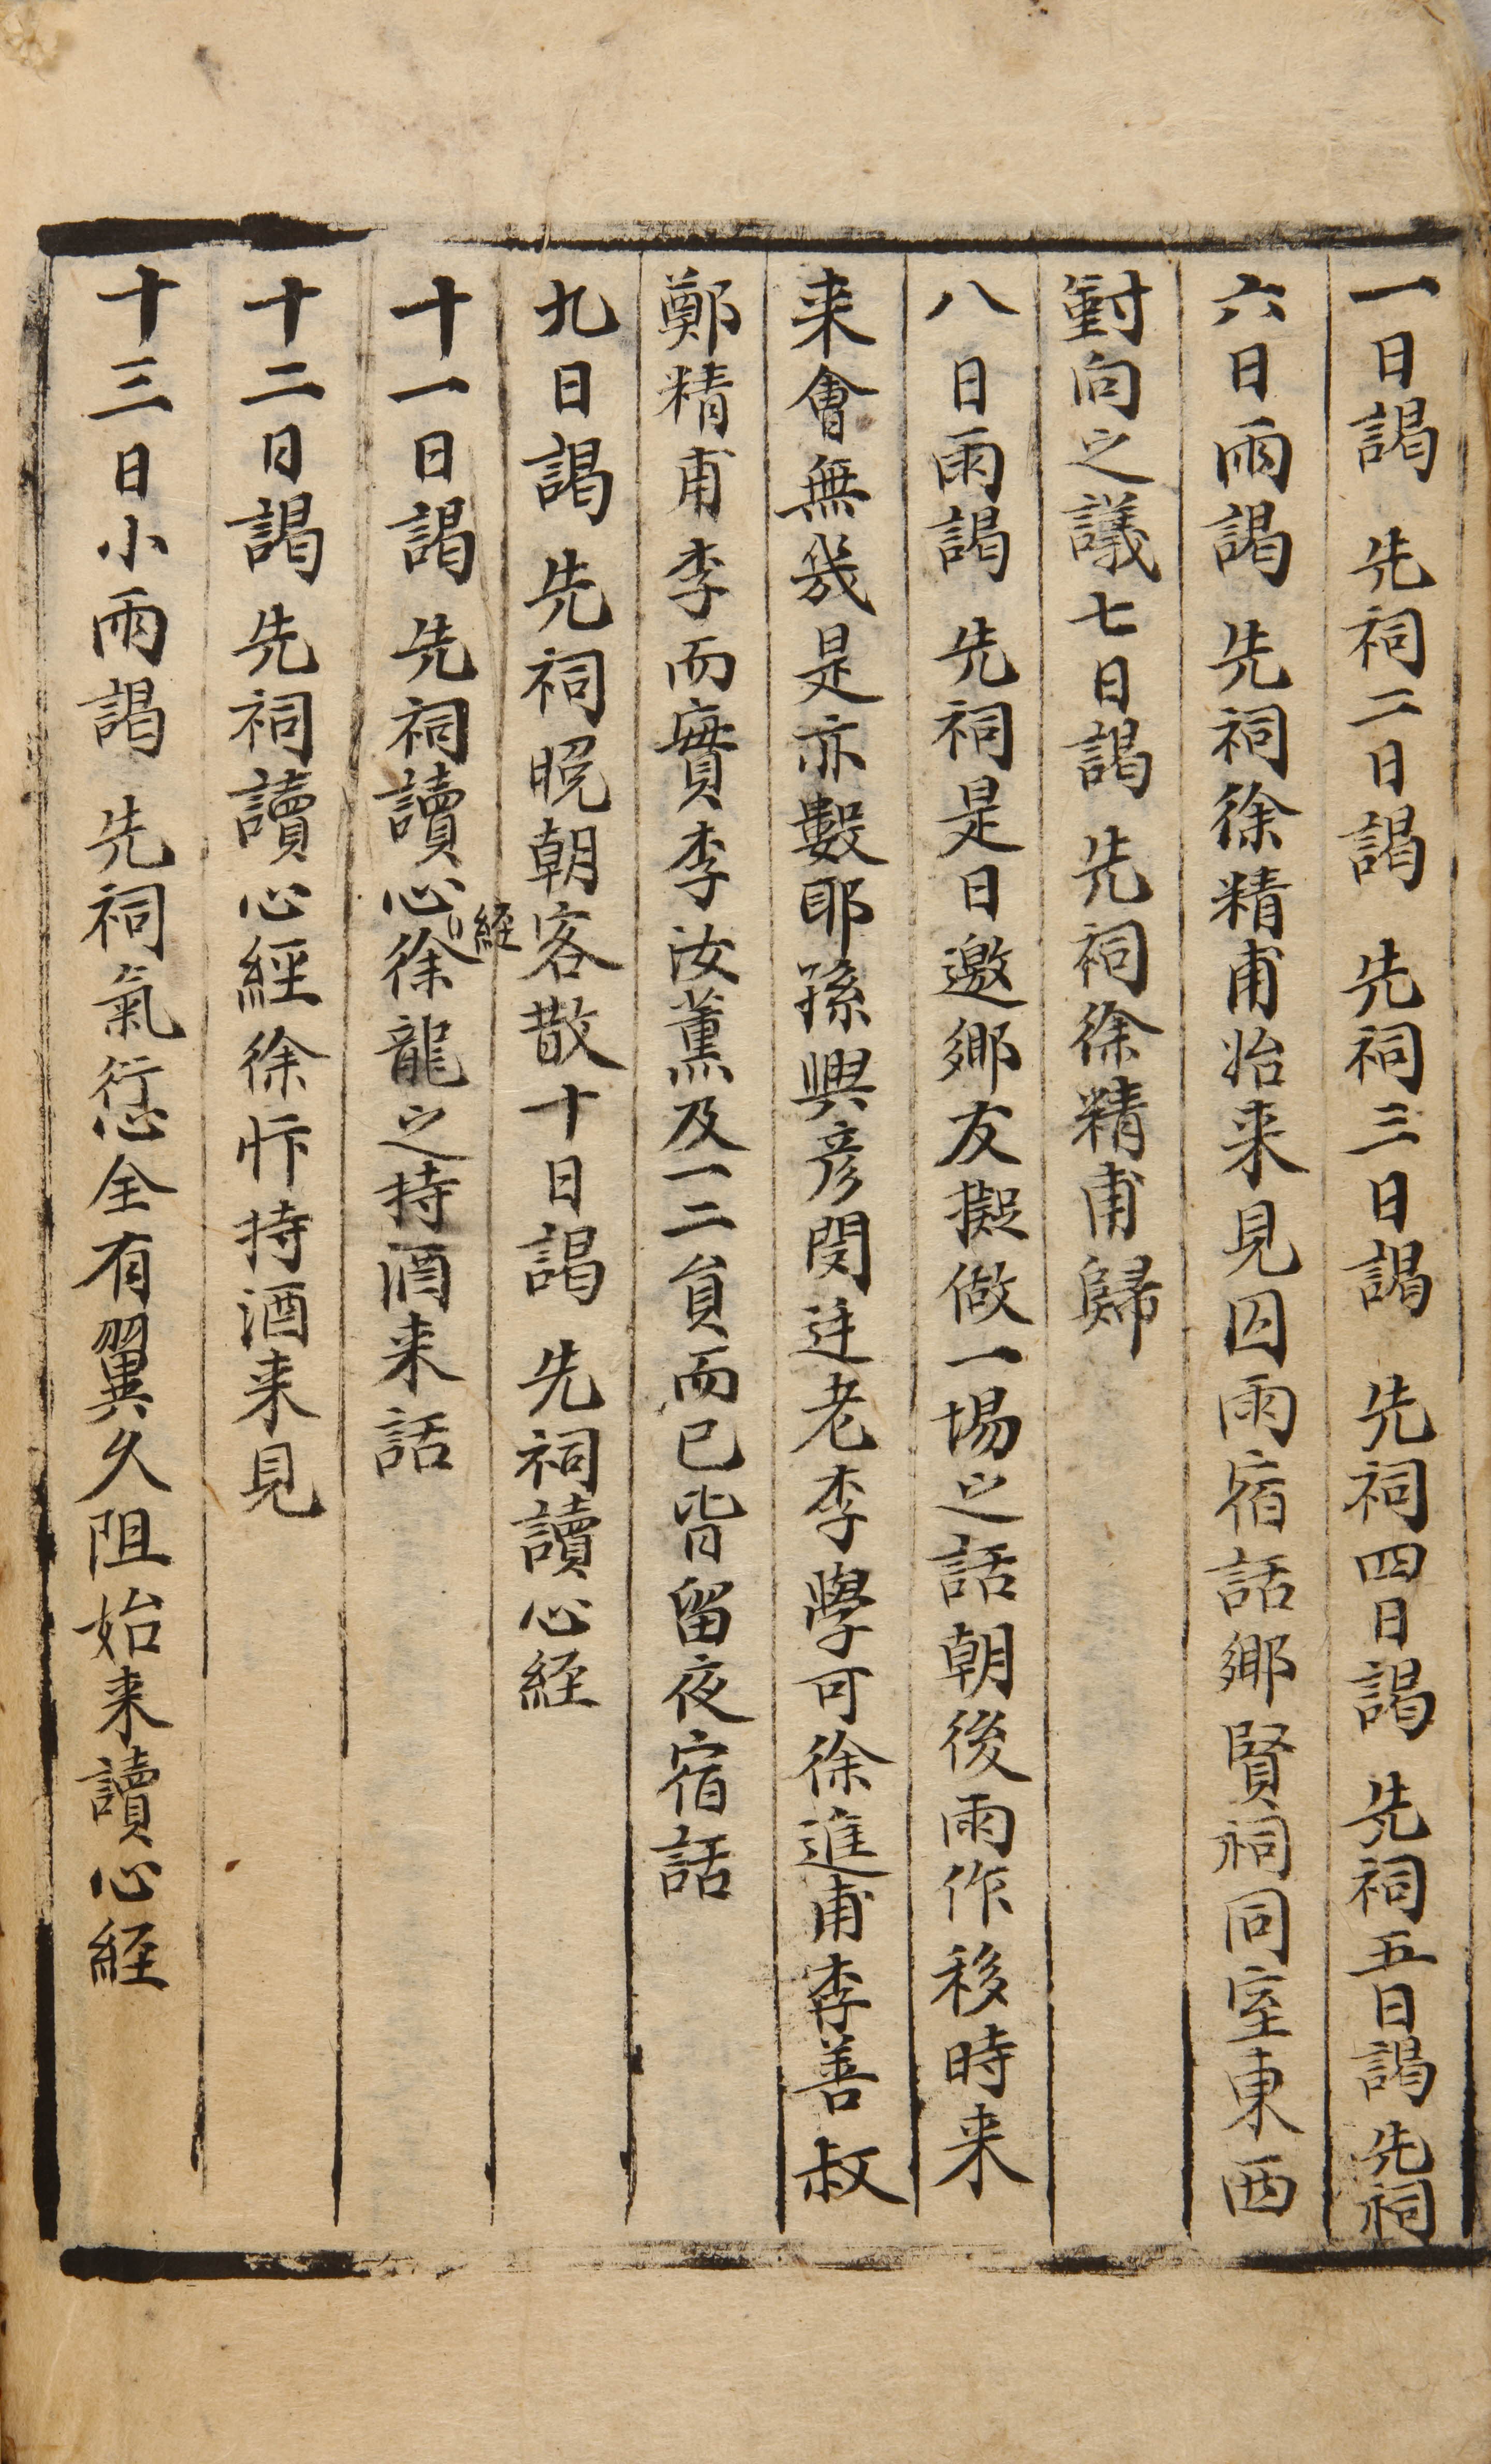 一日謁 先祠二日謁 先祠三日謁 先祠四日謁 先祠五日謁 先祠
六日雨謁 先祠徐精甫始来見因雨宿話鄕賢祠同室東西
對向之議七日謁 先祠徐精甫歸
八日雨謁 先祠是日邀鄕友擬做一場之話朝後雨作移時来
来會無幾是亦數耶孫興彦閔廷老李學可徐進甫李善叔
鄭精甫李而實李汝薰及一二員而已皆留夜宿話
九日謁 先祠晩朝客散十日謁 先祠讀心経
十一日謁 先祠讀心経徐龍之持酒来話
十二日謁 先祠讀心經徐忭持酒来見
十三日小雨謁 先祠氣愆全有翼久阻始来讀心経